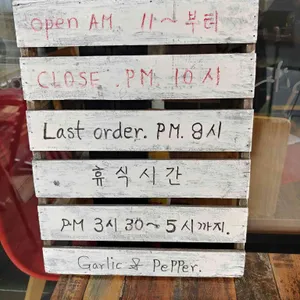 open AM. 11~부터
CLOSE. PM 10시
Last order. PM. 9시
휴식시간
PM 3시 30~5시까지.
Garlic & PePPer.